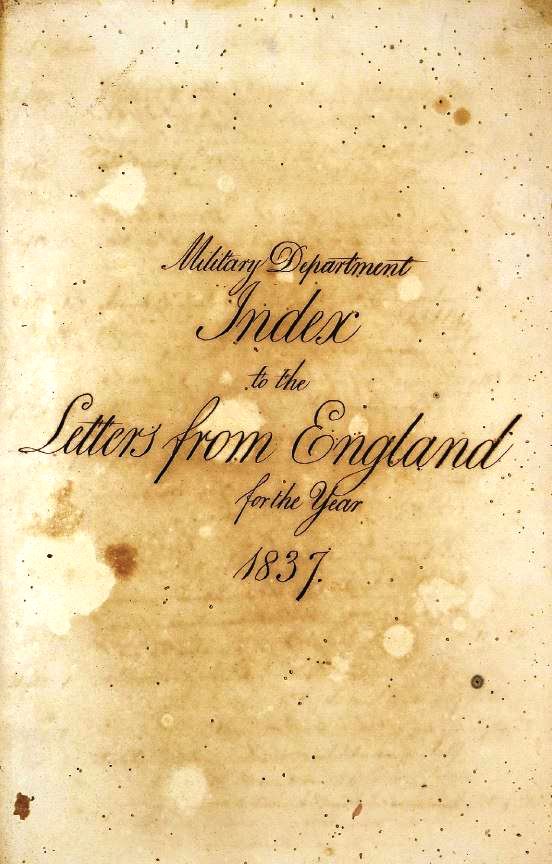 Military Department
Index
to the
Letters from England
for the Year
1837.